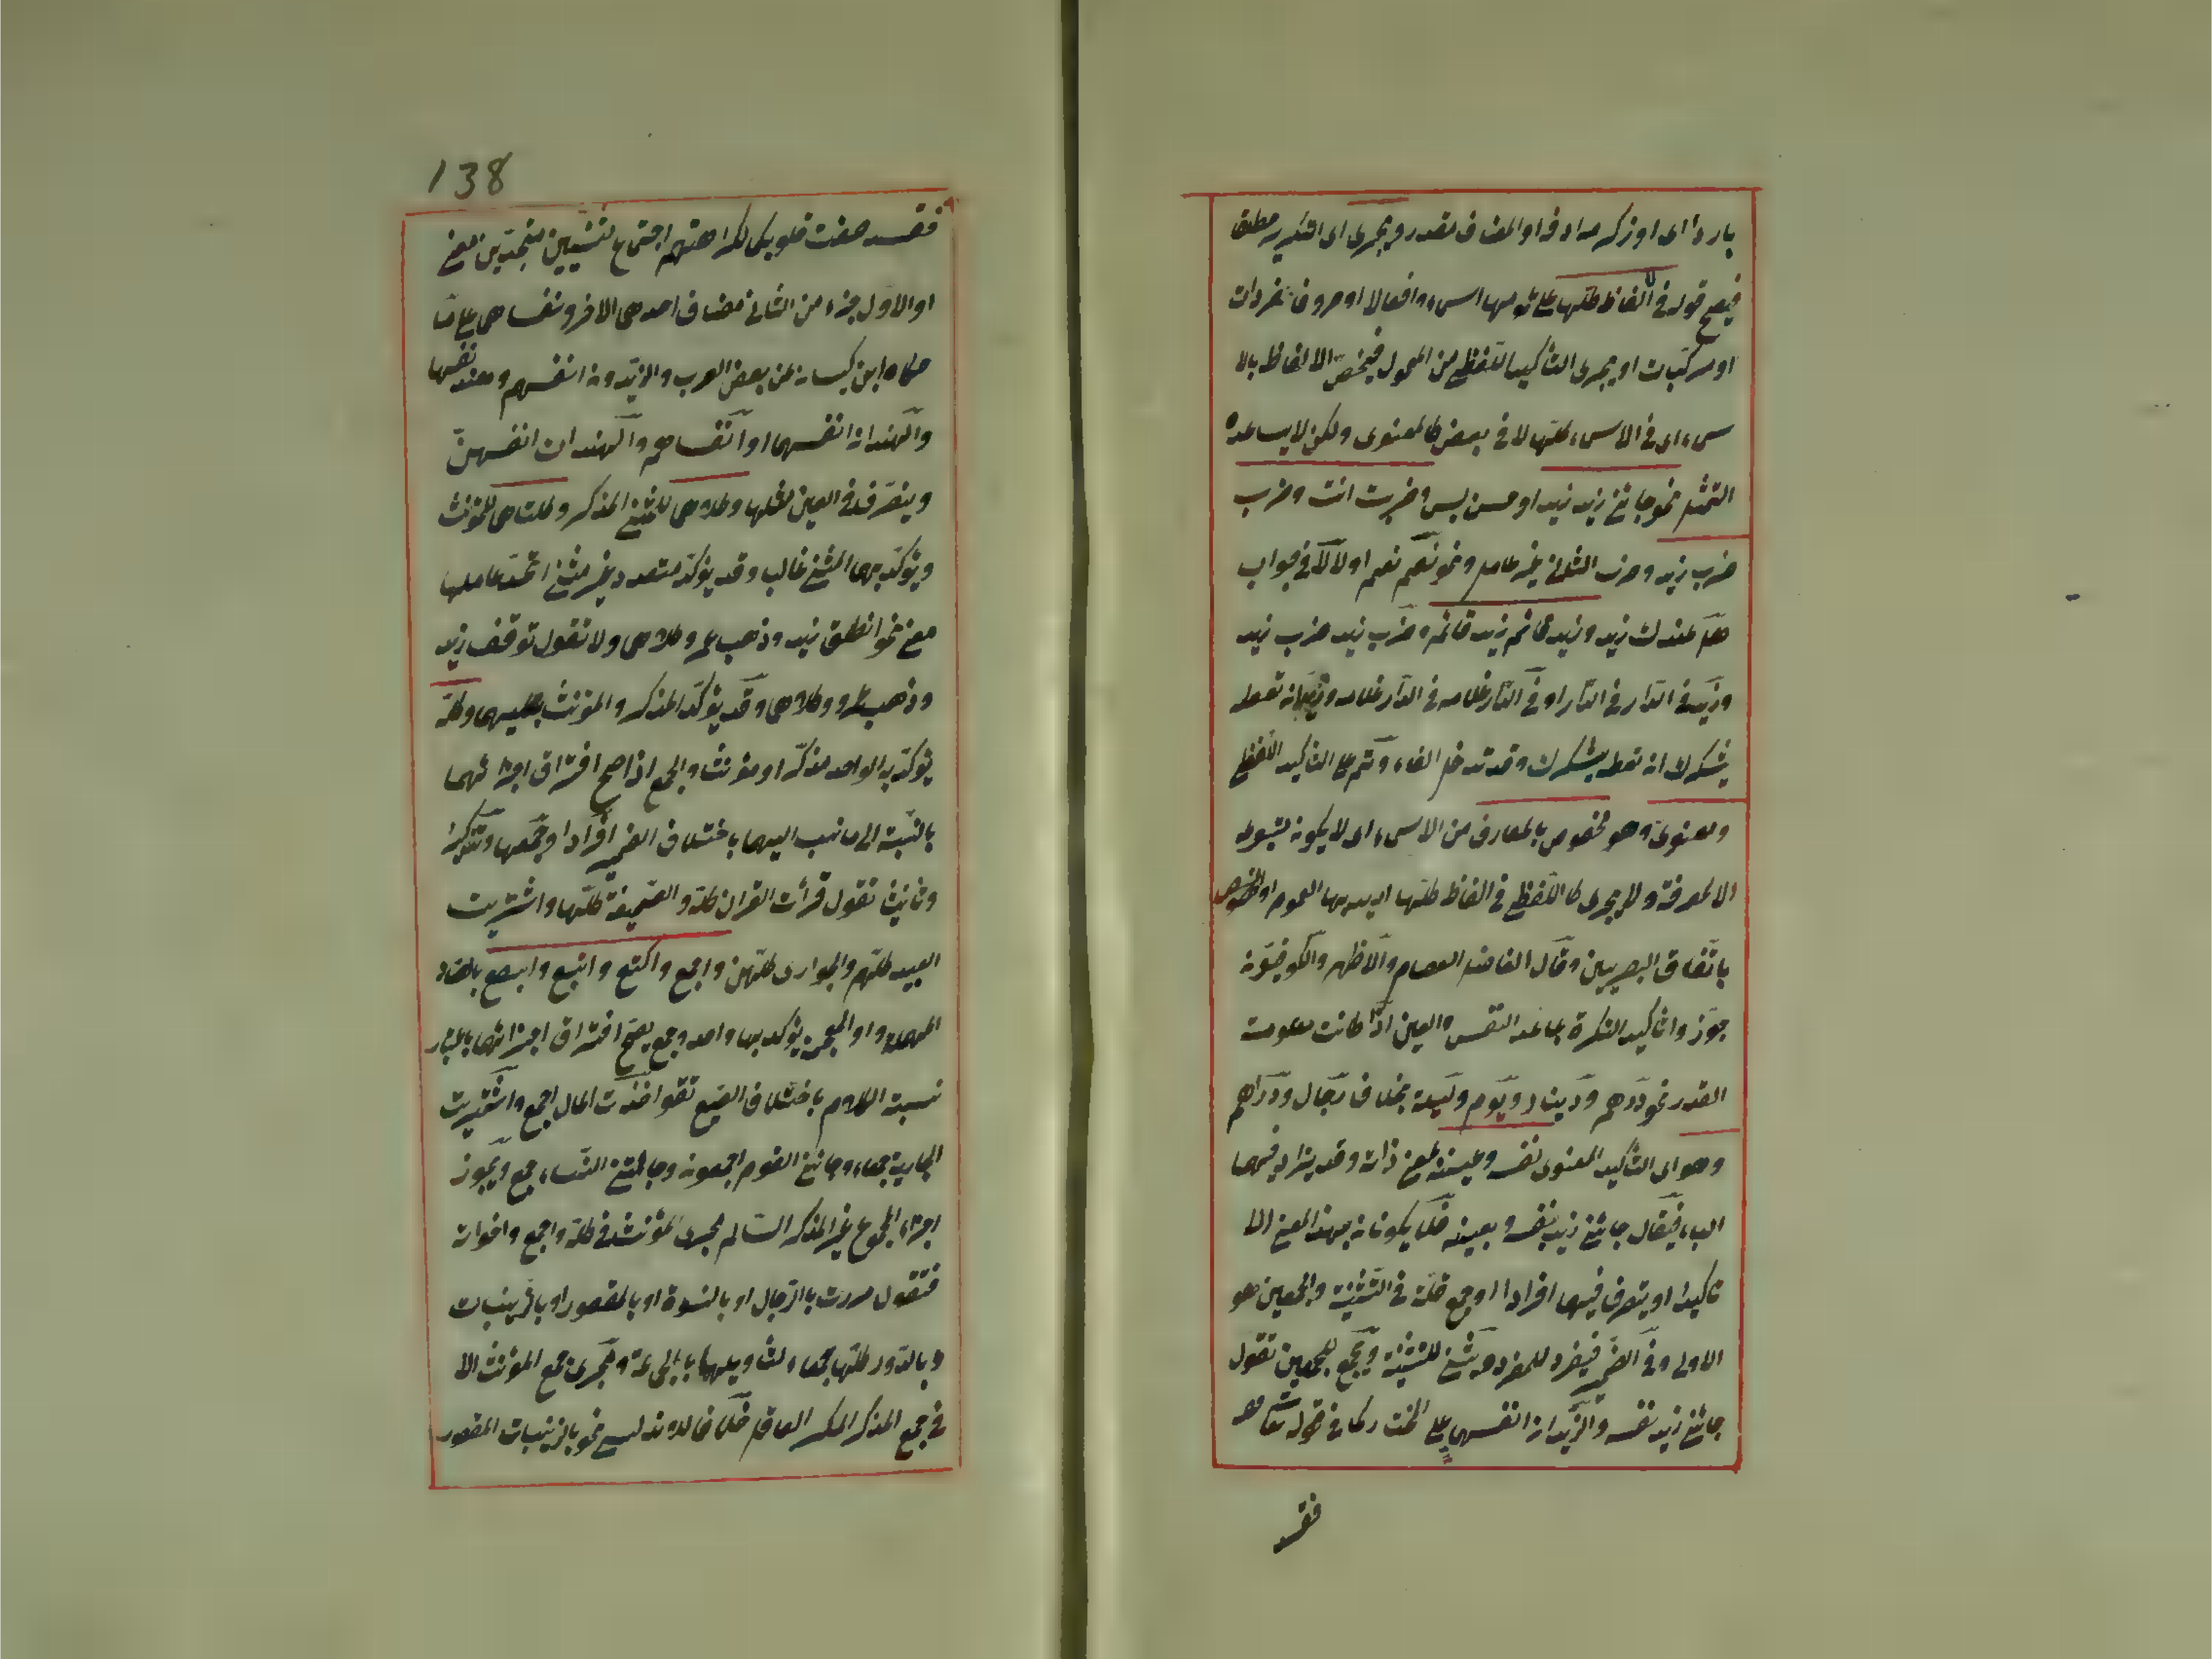 باردا اى او ذكر مرادفا او المضاف مقدر ويجرى اى التكرير مطلقا
فيصح قوله فى الفاظ كلها على ... اسماء وافعالا او حروفا مفردات
او مركبات او يجرى التأكيد اللفظى من المحمول فيختص الالفاظ بالا
سماء اى فى الاسماء كلها لا فى بعض كالمعنوى ولكن لا يساعده
التمثيل نحو جائنى زيد زيد او حسن بسن وضربت انت وضرب
ضرب زيد وضرب الثانى غير عامل ونحو نعم نعم او لا لا فى جواب
هل عندك زيد وزيد قائم زيد قائم وضرب زيد ضرب زيد
وزيد فى الدار فى الدار او فى الدار غلامه فى الدار غلامه و... ان تعطه
يشكرك ان تعطه يشكرك وقد تدخل الفاء وثم على التأكيد اللفظى
ومعنوى وهو مخصوص بالمعارف من الاسماء اى لا يكون متبوعه
الا معرفة ولا يجرى كاللفظى فى الفاظ كلها اريد بها العموم او الخصوص
باتفاق البصريين وقال الفاضل العصام والاظهر والكوفيون
جوزوا تأكيد النكرة بما عدا النفس والعين اذا كانت معلومة
القدر نحو درهم ودينار ويوم وليلة بخلاف رجال ودراهم
وهو اى التأكيد المعنوى نفسه وعينه بمعنى ذاته وقد يزاد فيهما
الباء فيقال جائنى زيد بنفسه وبعينه فلا يكونان بهذا المعنى الا
تأكيدا ويتصرف فيهما افرادا وجمع قلة فى التثنية والجمعين هو
الاولى وفى الضمير فيفرد للمفرد ويثنى للتثنية ويجمع للجمعين تقول
جائنى زيد نفسه والزيدان انفسهما على المختار كما فى قوله تعالى
فقد
138
فقد صغت قلوبكما لكراهتهم اجتماع تثنيتين متحدتين معنى
او الاول جزء من الثانى مضاف احدهما الاخر ونفساهما على ما
حكاه ابن كيسان عن بعض العرب والزيدون انفسهم وهند نفسها
والهندان انفسهما او نفساهما والهندات انفسهن
ويتصرف فى العين مثلها وكلاهما للمثنى المذكر وكلتاهما للمؤنث
ويؤكد بهما المثنى غالبا وقد يؤكد متعدد غير مثنى اتحد عاملها
معنى نحو انطلق زيد وذهب عمرو كلاهما ولا تقول توقف زيد
وذهب عمرو كلاهما وقد يؤكد المذكر والمؤنث بكليهما وكله
يؤكد به الواحد مذكرا او مؤنثا والجمع اذا صح افتراق اجزائهما
بالنسبة الى ما نسب اليهما باختلاف الضمير افرادا وجمعا وتذكيرا
وتأنيثا تقول قرأت القرآن كله والصحيفة كلها واشتريت
العبيد كلهم والجوارى كلهن واجمع واكتع وابتع وابصع بالصاد
المهملة او المعجمة يؤكد بها واحد وجمع يصح افتراق اجزائهما باعتبار
نسبة الكلام باختلاف الصيغ تقول اخذت المال اجمع واشتريت
الجارية جمعاء وجائنى القوم اجمعون وجائتنى النساء جمع ويجوز
اجراء الجموع غير المذكر السالم مجرى المؤنث فى كله واجمع واخواته
فتقول مررت بالرجال او بالنسوة او بالقصور او بالزينبات
وبالدور كلها جمعاء لتأويلها بالجماعة ويجرى جمع المؤنث الا
فى جمع المذكر المكسر العاقل خلافا للاندلسى نحو بالزينبات القصور